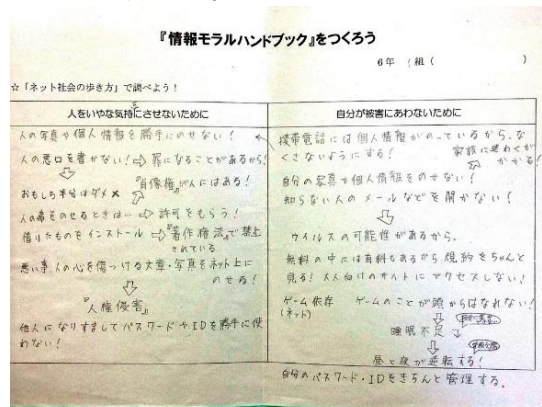 『情報モラルハンドブック』をつくろう
6年 1組 ( )
☆「ネット社会の歩き方」で調べよう!
人をいやな気持ちにさせないために
人の写真や個人情報を勝手にのせない!
人の悪口を書かない!⇨罪になることがあるから!
おもしろ半分はダメ×
『肖像権』が人にはある!
人の事をのせるときは…⇨許可をもらう!
借りたものをインストール⇨『著作権法』で禁止
されている
悪い事 人の心を傷つける文章・写真をネット上に
のせる!
『人権侵害』
他人になりすましてパスワードやIDを勝手に使
わない!
自分が被害にあわないために
携帯電話には個人情報がのっているから、な
くさないようにする!
家族に迷わくが
かかる!
自分の写真や個人情報をのせない!
知らない人のメールなどを開かない!
ウイルスの可能性があるから。
無料の中には有料もあるから規約をちゃんと
見る!大人向けのサイトにアクセスしない!
ゲーム依存 ゲームのことが頭からはなれない!
(ネット)
睡眠不足
昼と夜が逆転する!
自分のパスワード・IDをきちんと管理する。